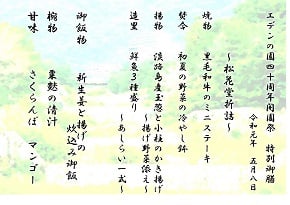 エデンの園四十周年開園祭　特別御膳
令和元年　五月八日
～松花堂折詰～
焼物　黒毛和牛のミニステーキ
焚合　初夏の野菜の冷やし鉢
揚物　淡路島産玉葱と小柱のかき揚げ
～揚げ野菜添え～
造里　鮮魚3種盛り
～あしらい一式～
御飯物　新生姜と揚げの
炊込み御飯
椀物　粟麩の清汁
甘味　さくらんぼ　マンゴー